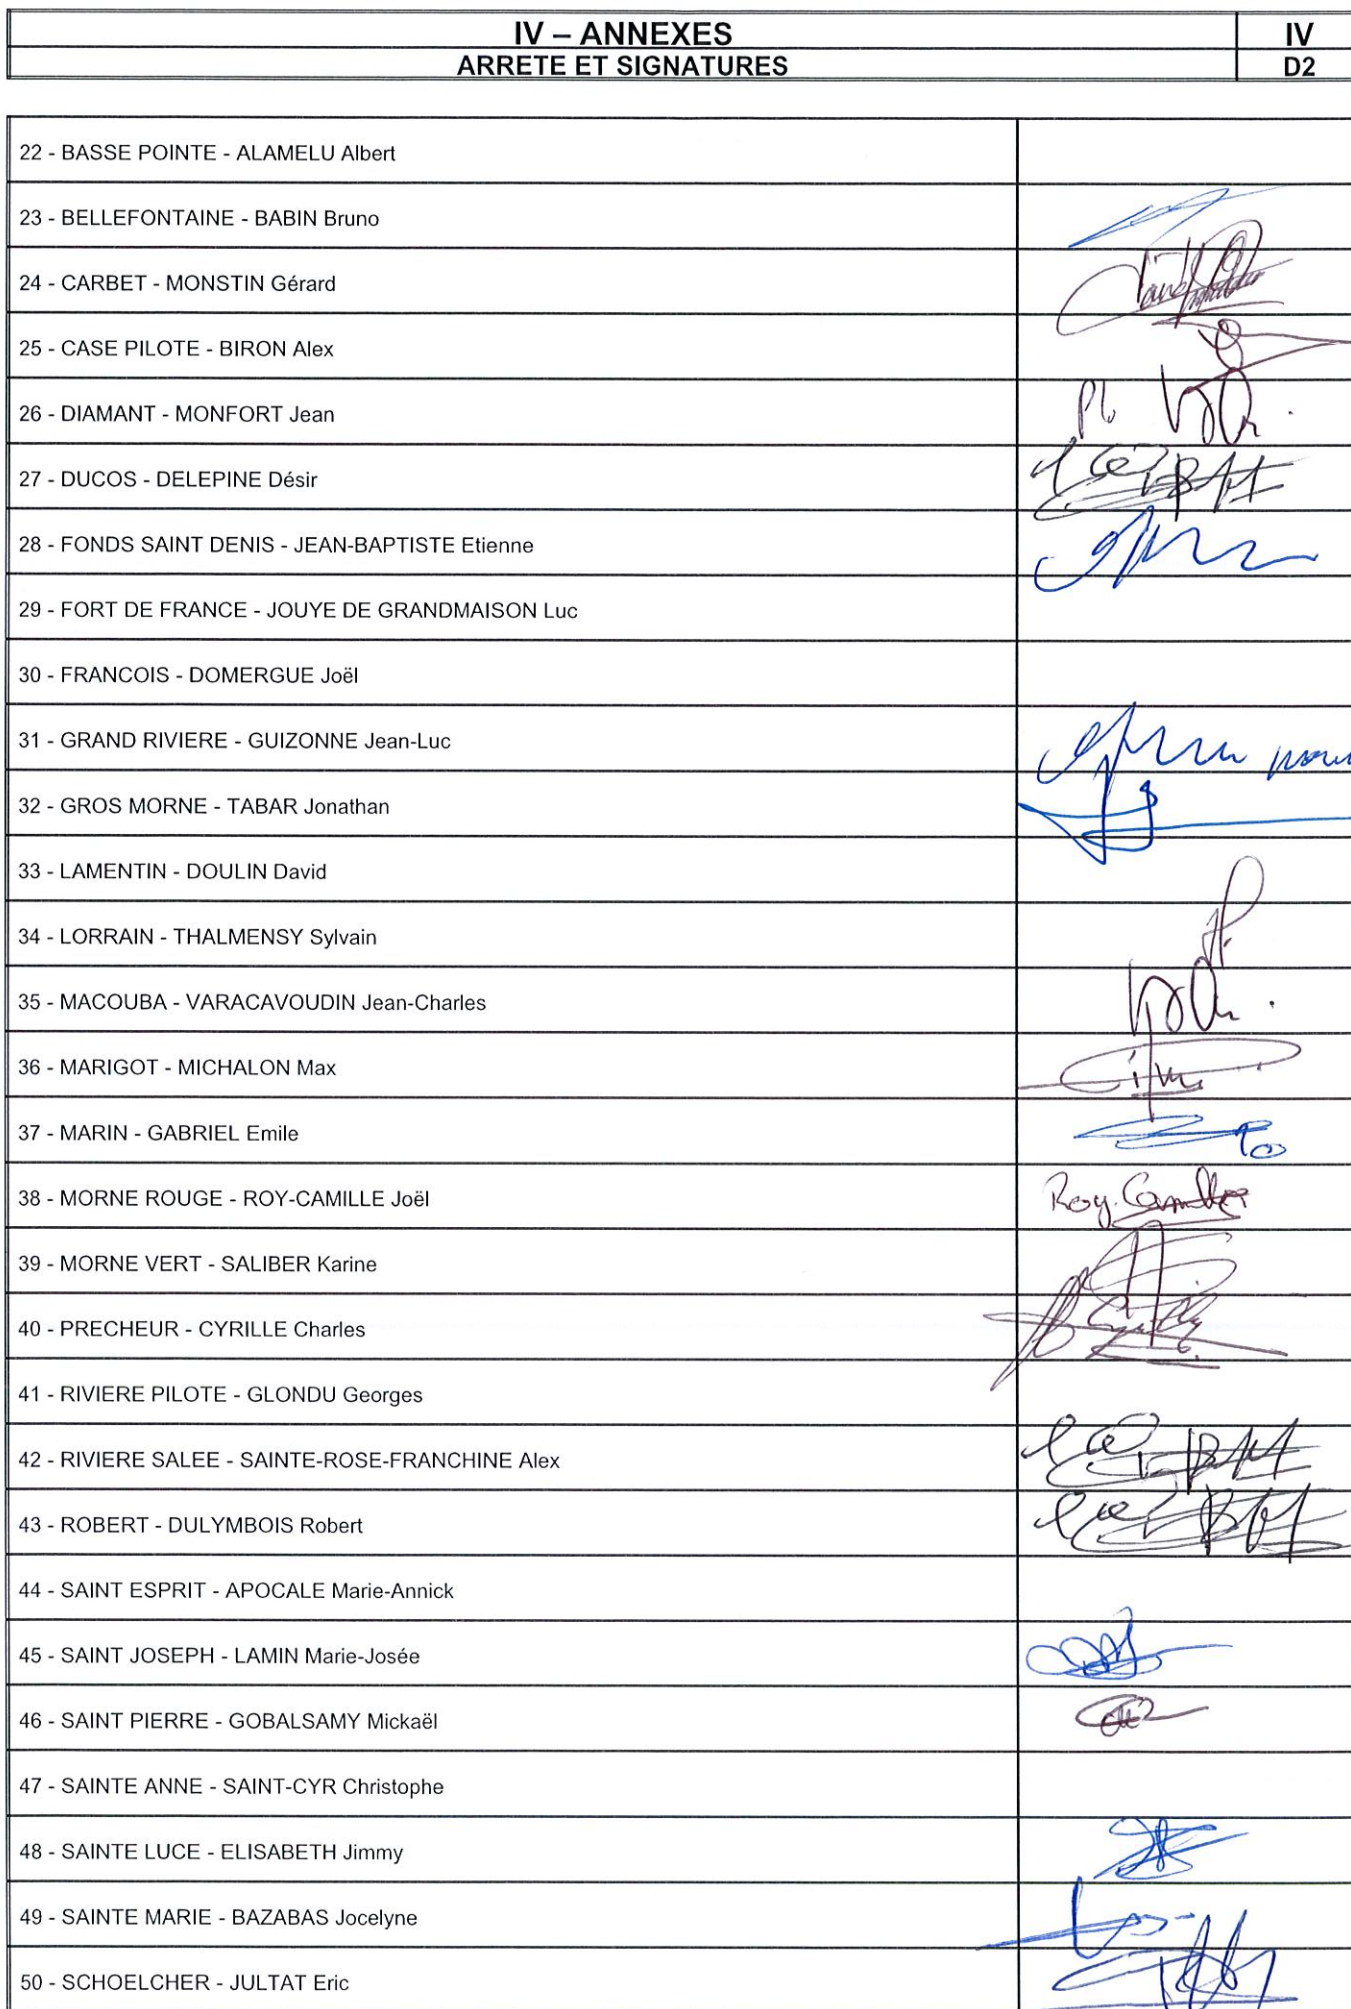 IV – ANNEXES IV
ARRETE ET SIGNATURES D2
22 - BASSE POINTE - ALAMELU Albert
23 - BELLEFONTAINE - BABIN Bruno
24 - CARBET - MONSTIN Gérard
25 - CASE PILOTE - BIRON Alex
26 - DIAMANT - MONFORT Jean
27 - DUCOS - DELEPINE Désir
28 - FONDS SAINT DENIS - JEAN-BAPTISTE Etienne
29 - FORT DE FRANCE - JOUYE DE GRANDMAISON Luc
30 - FRANCOIS - DOMERGUE Joël
31 - GRAND RIVIERE - GUIZONNE Jean-Luc
32 - GROS MORNE - TABAR Jonathan
33 - LAMENTIN - DOULIN David
34 - LORRAIN - THALMENSY Sylvain
35 - MACOUBA - VARACAVOUDIN Jean-Charles
36 - MARIGOT - MICHALON Max
37 - MARIN - GABRIEL Emile
38 - MORNE ROUGE - ROY-CAMILLE Joël Roy-Camille
39 - MORNE VERT - SALIBER Karine
40 - PRECHEUR - CYRILLE Charles
41 - RIVIERE PILOTE - GLONDU Georges
42 - RIVIERE SALEE - SAINTE-ROSE-FRANCHINE Alex
43 - ROBERT - DULYMBOIS Robert
44 - SAINT ESPRIT - APOCALE Marie-Annick
45 - SAINT JOSEPH - LAMIN Marie-Josée
46 - SAINT PIERRE - GOBALSAMY Mickaël
47 - SAINTE ANNE - SAINT-CYR Christophe
48 - SAINTE LUCE - ELISABETH Jimmy
49 - SAINTE MARIE - BAZABAS Jocelyne
50 - SCHOELCHER - JULTAT Eric